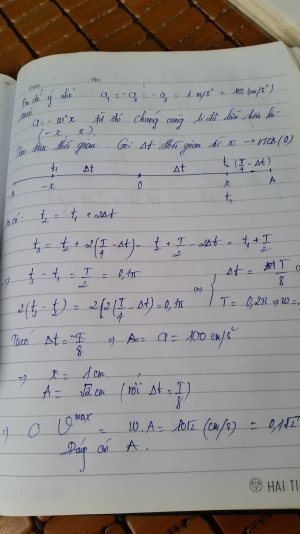 Date No
Em để ý nhé a₁ = -a₂ = -a₃ = 1 m/s² = 100 (cm/s²)
a = -ω²x từ đó chúng cùng li độ
(-x x)
Theo thời gian : Gọi Δt thời gian từ x → VTCB (O)
t₁ Δt Δt t₂ (T/4 - Δt)
-A -x O x A
t₃
có : t₂ = t₁ + 2Δt
t₃ = t₂ + 2(T/4 - Δt) = t₂ + T/2 - 2Δt = t₁ + T/2
⇒ t₃ - t₁ = T/2 = 0,1π
2(t₃ - t₂) = 2[2(T/4 - Δt)] = 0,1π ∞ { Δt = T/8
T = 0,2π ⇒ ω =
Ta có Δt = T/8 ⇒ a = 100 cm/s²
⇒ x = 1 cm
A = √2 cm (với Δt = T/8)
⇒ vmax = ω.A = 10√2 (cm/s) = 0,1√2
Đáp án A.
HẢI TI